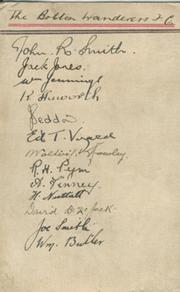 The Bolton Wanderers F.C
John R. Smith.
Jack Jones.
Wm Jennings
K Howorth
Seddon
Ed T. Vizard
R. H. Pym
A. Finney
H. Nuttall
David B. N. Jack
Joe Smith
Wm. Butler